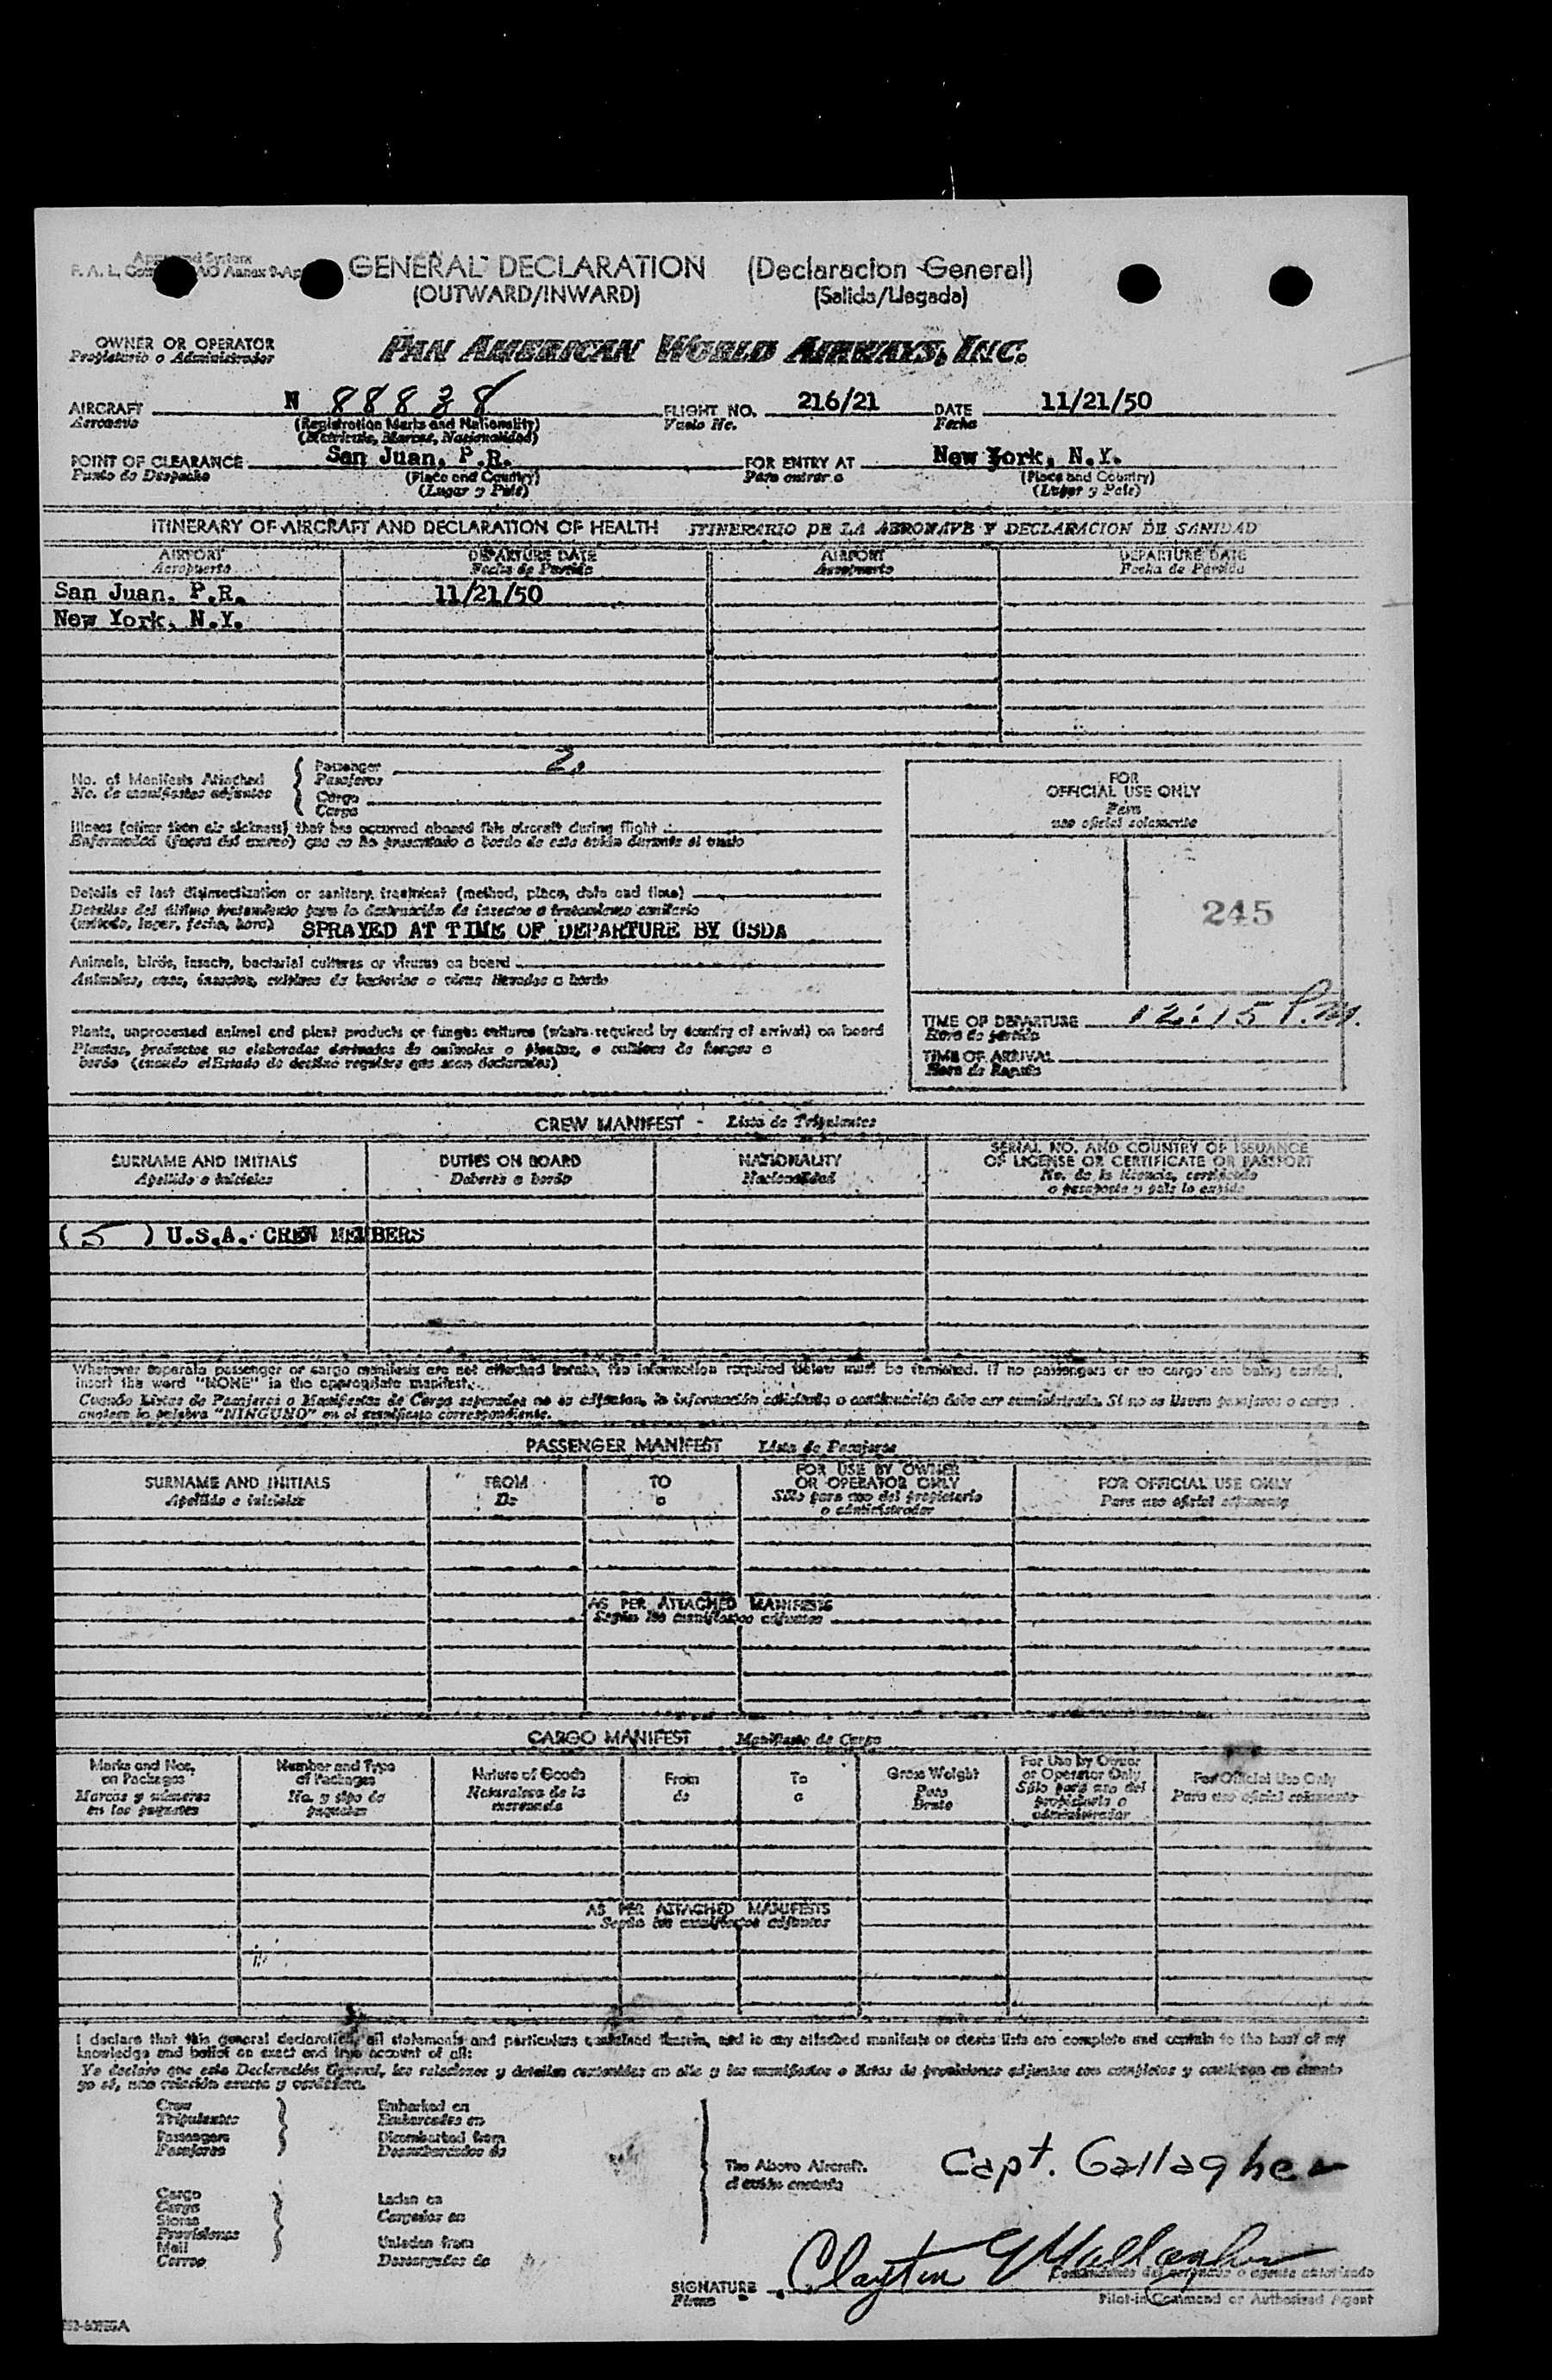 GENERAL DECLARATION (Declaracion General)
(OUTWARD/INWARD) (Salida/Llegada)
OWNER OR OPERATOR PAN AMERICAN WORLD AIRWAYS, INC.
Propietario o Administrador
AIRCRAFT N 88838 FLIGHT NO. 216/21 DATE 11/21/50
Aeronave (Registration Marks and Nationality) Vuelo No. Fecha
(Matricula, Marcas, Nacionalidad)
POINT OF CLEARANCE San Juan, P.R. FOR ENTRY AT New York, N.Y.
Punto de Despacho (Place and Country) Para entrar a (Place and Country)
(Lugar y Pais) (Lugar y Pais)
ITINERARY OF AIRCRAFT AND DECLARATION OF HEALTH ITINERARIO DE LA AERONAVE Y DECLARACION DE SANIDAD
AIRPORT DEPARTURE DATE AIRPORT DEPARTURE DATE
Aeropuerto Fecha de Partida Aeropuerto Fecha de Partida
San Juan, P.R. 11/21/50
New York, N.Y.
No. of Manifests Attached Passenger 2
No. de manifiestos adjuntos Pasajeros
Cargo
Carga
FOR
OFFICIAL USE ONLY
Para
uso oficial solamente
Illness (other than air sickness) that has occurred aboard this aircraft during flight
Enfermedad (fuera del mareo) que se ha presentado a bordo de este avión durante el vuelo
Details of last disinsectization or sanitary treatment (method, place, date and time)
Detalles del último tratamiento para la destrucción de insectos o tratamiento sanitario
(método, lugar, fecha, hora) SPRAYED AT TIME OF DEPARTURE BY USDA
245
Animals, birds, insects, bacterial cultures or viruses on board
Animales, aves, insectos, cultivos de bacterias o virus llevados a bordo
TIME OF DEPARTURE 12:15 P.M.
Hora de partida
TIME OF ARRIVAL
Plants, unprocessed animal and plant products or fungus cultures (where required by country of arrival) on board
Plantas, productos no elaborados derivados de animales o plantas, o cultivos de hongos a
bordo (cuando el Estado de destino requiera que sean declarados)
CREW MANIFEST - Lista de Tripulantes
SURNAME AND INITIALS DUTIES ON BOARD NATIONALITY SERIAL NO. AND COUNTRY OF ISSUANCE
OF LICENSE OR CERTIFICATE OR PASSPORT
Apellido e iniciales Deberes a bordo Nacionalidad No. de la licencia, certificado
o pasaporte y pais lo expide
( 5 ) U.S.A. CREW MEMBERS
Whenever separate passenger or cargo manifests are not attached hereto, the information required below must be furnished. If no passengers or no cargo are being carried,
insert the word "NONE" in the appropriate manifest.
Cuando Listas de Pasajeros o Manifiestos de Carga separados no se adjuntan, la información solicitada a continuación debe ser suministrada. Si no se llevan pasajeros o carga
anótese la palabra "NINGUNO" en el manifiesto correspondiente.
PASSENGER MANIFEST Lista de Pasajeros
SURNAME AND INITIALS FROM TO FOR USE BY OWNER
OR OPERATOR ONLY FOR OFFICIAL USE ONLY
Apellido e iniciales De a Sólo para uso del propietario
o administrador Para uso oficial solamente
AS PER ATTACHED MANIFESTS
Según los manifiestos adjuntos
CARGO MANIFEST Manifiesto de Carga
Marks and Nos.
on Packages
Marcas y números
en los paquetes
Number and Type
of Packages
No. y tipo de
paquetes
Nature of Goods
Naturaleza de la
mercancia
From
de
To
a
Gross Weight
Peso
Bruto
For Use by Owner
or Operator Only
Sólo para uso del
propietario o
administrador
For Official Use Only
Para uso oficial solamente
AS PER ATTACHED MANIFESTS
Según los manifiestos adjuntos
I declare that this general declaration, all statements and particulars contained therein, and in any attached manifests or stores lists are complete and contain to the best of my
knowledge and belief an exact and true account of all:
Yo declaro que esta Declaración General, las relaciones y detalles contenidos en ella y los manifiestos o listas de provisiones adjuntas son completos y contienen en cuanto
yo sé, una relación exacta y verdadera.
Crew Embarked on
Tripulantes Embarcados en
Passengers Disembarked from
Pasajeros Desembarcados de
The Above Aircraft. Capt. Gallagher
Cargo Laden on
Carga Cargados en
Stores
Provisiones
Mail Unladen from
Correo Descargados de
SIGNATURE Clayton G Gallagher
Firma Comandante del aeronave o agente autorizado
Pilot-in Command or Authorized Agent